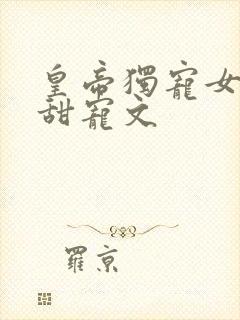 皇帝獨寵女
甜寵文
羅京